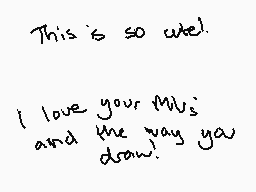 This is so cute!
I love your MVs
and the way you
draw!